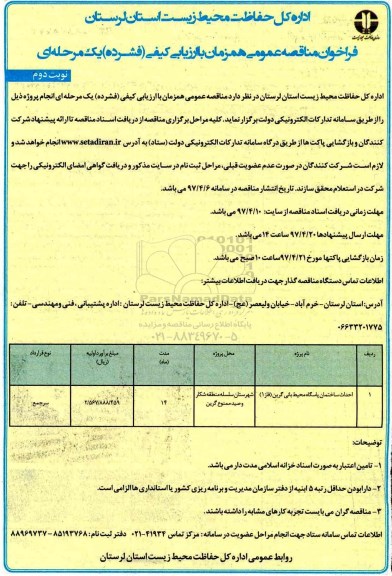 اداره کل حفاظت محیط زیست استان لرستان
فراخوان مناقصه عمومی همزمان با ارزیابی کیفی (فشرده) یک مرحله ای
نوبت دوم
اداره کل حفاظت محیط زیست استان لرستان در نظر دارد مناقصه عمومی همزمان با ارزیابی کیفی (فشرده) یک مرحله ای انجام پروژه ذیل
را از طریق سامانه تدارکات الکترونیکی دولت برگزار نماید. کلیه مراحل برگزاری مناقصه از دریافت اسناد مناقصه تا ارائه پیشنهاد شرکت
کنندگان و بازگشایی پاکت ها از طریق درگاه سامانه تدارکات الکترونیکی دولت (ستاد) به آدرس www.setadiran.ir انجام خواهد شد و
لازم است شرکت کنندگان در صورت عدم عضویت قبلی، مراحل ثبت نام در سایت مذکور و دریافت گواهی امضای الکترونیکی را جهت
شرکت در استعلام محقق سازند. تاریخ انتشار مناقصه در سامانه ۹۷/۴/۶ می باشد.
مهلت زمانی دریافت اسناد مناقصه از سایت: ۹۷/۴/۱۰ می باشد.
مهلت ارسال پیشنهادها ۹۷/۴/۲۰ ساعت ۱۴ می باشد.
زمان بازگشایی پاکتها مورخ ۹۷/۴/۲۱ ساعت ۱۰ صبح می باشد.
اطلاعات تماس دستگاه مناقصه گذار جهت دریافت اطلاعات بیشتر:
آدرس: استان لرستان - خرم آباد - خیابان ولیعصر (عج) - اداره کل حفاظت محیط زیست لرستان: اداره پشتیبانی، فنی و مهندسی - تلفن:
۰۶۶۳۳۲۰۱۷۷۵
پایگاه اطلاع رسانی مناقصه و مزایده
۰۲۱-۸۸۳۴۹۶۷۰-۵
ردیف نام پروژه محل پروژه مدت (ماه) مبلغ برآورد اولیه (ریال) نوع قرارداد
۱ احداث ساختمان پاسگاه محیط بانی گرین (فاز۱) شهرستان سلسله منطقه شکار و صید ممنوع گرین ۱۴ ۲/۵۶۷/۸۸۸/۲۵۹ سرجمع
توضیحات:
۱- تامین اعتبار به صورت اسناد خزانه اسلامی مدت دار می باشد.
۲- دارا بودن حداقل رتبه ۵ ابنیه از دفتر سازمان مدیریت و برنامه ریزی کشور یا استانداری ها الزامی است.
۳- مناقصه گران می بایست تجربه کارهای مشابه را داشته باشند.
اطلاعات تماس سامانه ستاد جهت انجام مراحل عضویت در سامانه: مرکز تماس ۴۱۹۳۴-۰۲۱ دفتر ثبت نام: ۸۵۱۹۳۷۶۸ - ۸۸۹۶۹۷۳۷
روابط عمومی اداره کل حفاظت محیط زیست استان لرستان